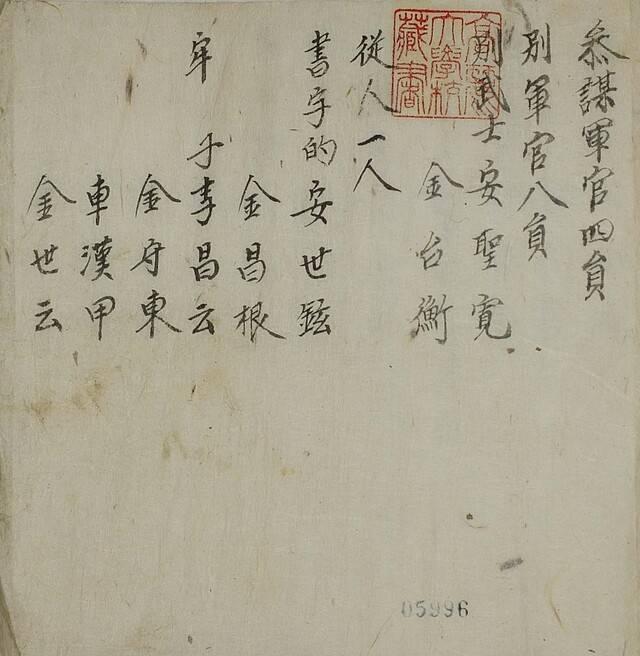 叅謀軍官四員
別軍官八員
別武士安聖寬
金台衡
從人一人
書字的安世鉉
金昌根
牢子李昌云
金守東
車漢甲
金世云
大學校
藏書
05996